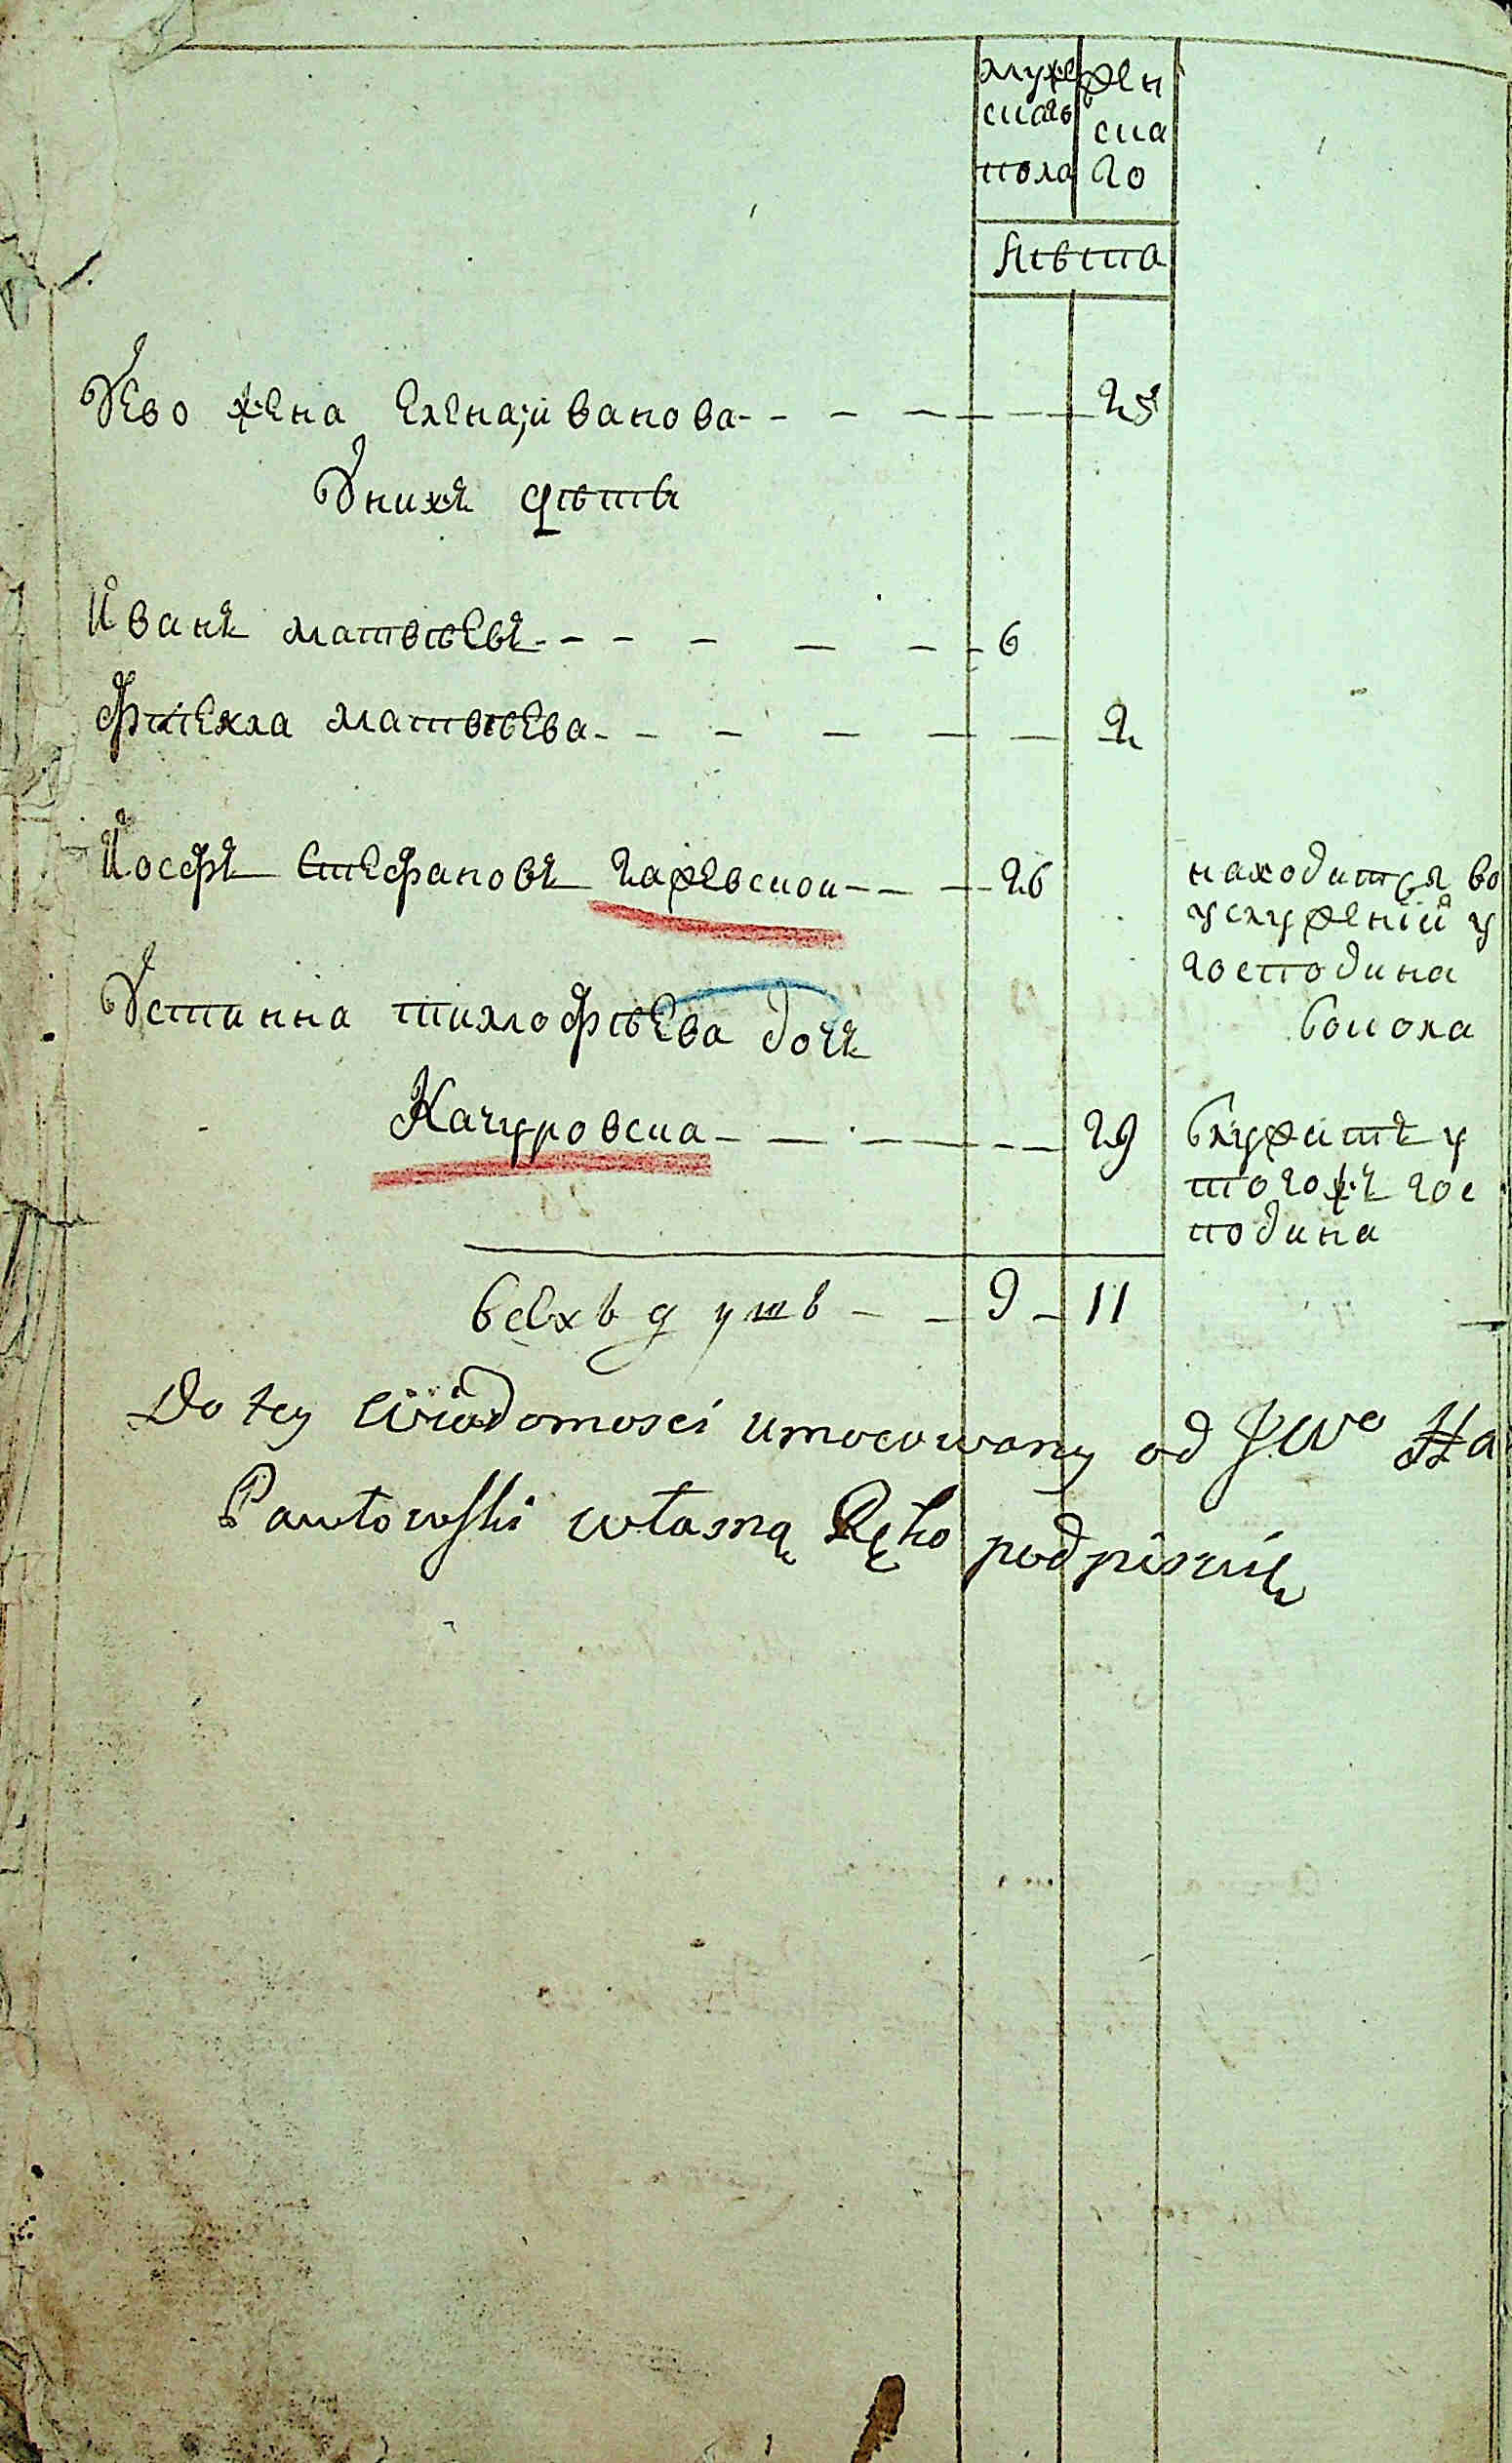 мужескаго пола
женскаго
лѣта
Уево жена Елена Иванова - - - - - - 25
Унихъ дѣти
Иванъ матвѣевъ - - - - - - 6
Фтекла матвѣева - - - - - - 2
Иосфъ Стефановъ гаревской - - - 26
находится во
услуженіи у
господина
Сокола
Устинна тимофѣева дочъ
Качуровска - - - - - - 29
Служитъ у
тогожъ гос
подина
всехъ душъ - - 9 - 11
Do tey wiadomosci umocowany od JWo
Pawłowski własną Ręko podpisuię